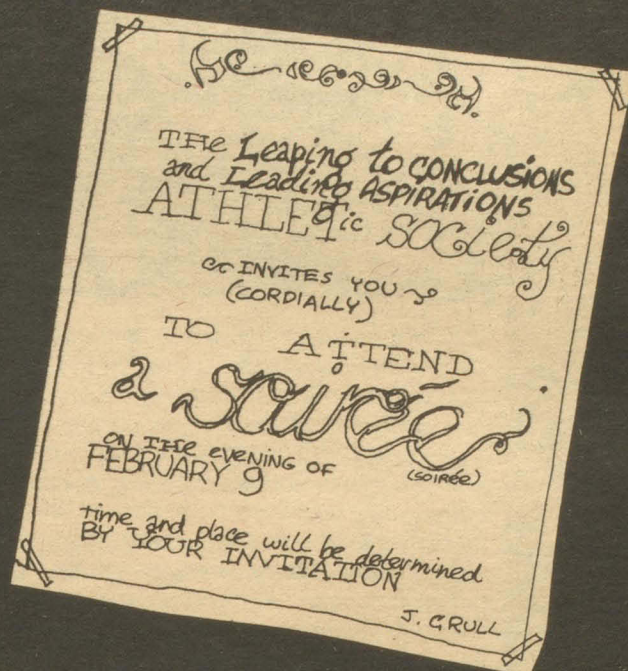 THE Leaping to CONCLUSIONS
and Leading ASPIRATIONS
ATHLETic SOCIety
INVITES YOU
(CORDIALLY)
TO ATTEND
a soirée
(SOIRÉE)
ON THE eVENING OF
FEBRUARY 9
time and place will be determined
BY YOUR INVITATION
J. GRULL